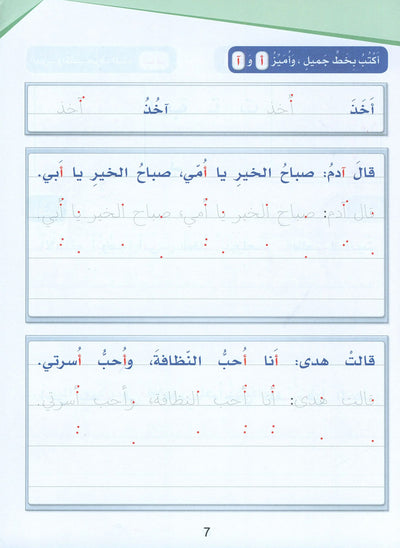 أَكْتُبُ بِخَطٍّ جَميلٍ، وَأُمَيِّزُ أ وَ آ
أَخَذَ أخذ آخُذُ أخذ
قالَ آدمُ: صباحُ الخيرِ يا أُمّي، صباحُ الخيرِ يا أَبي.
قال أدم: صباح الخير يا أمي، صباح الخير يا أبي.
قالتْ هدى: أَنا أُحبُّ النّظافةَ، وأُحبُّ أُسرتي.
قالت هدى: أنا أحب النظافة، وأحب أسرتي.
7